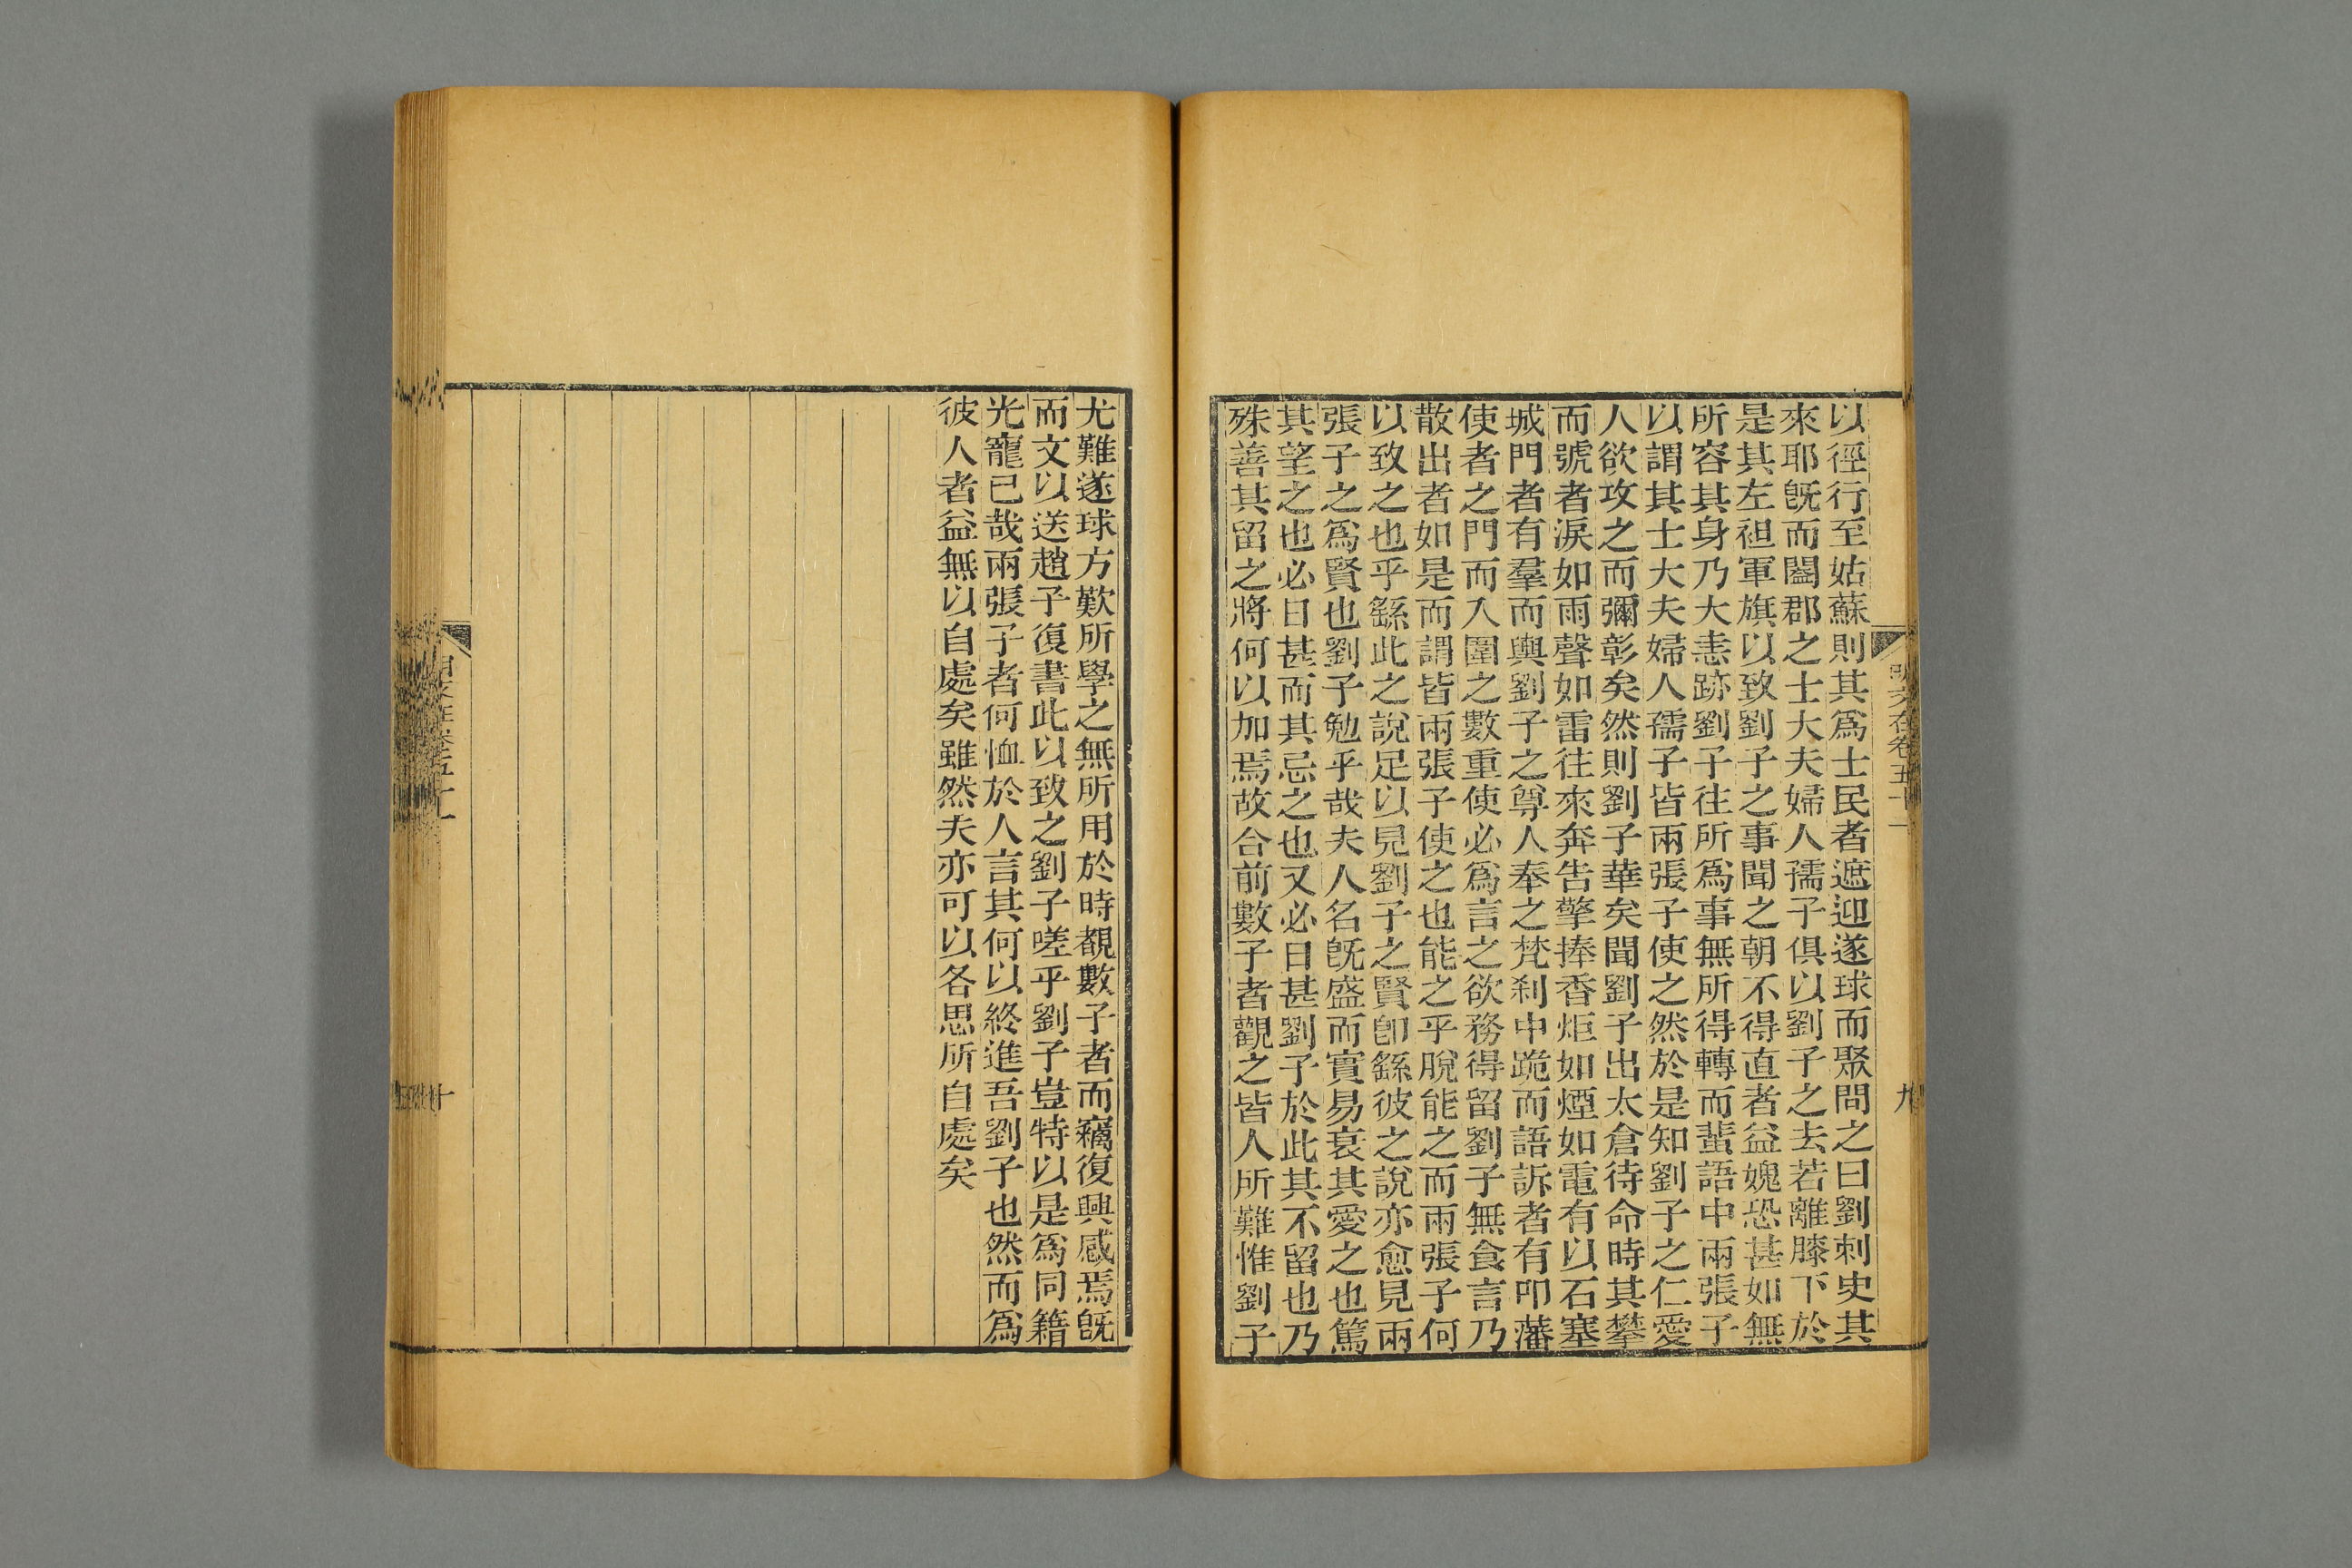 以徑行至姑蘇則其爲士民者遮迎遂球而聚問之曰劉刺史其
來耶旣而闔郡之士大夫婦人孺子俱以劉子之去若離膝下於
是其左袒軍旗以致劉子之事聞之朝不得直者益媿恐甚如無
所容其身乃大恚跡劉子往所爲事無所得轉而蜚語中兩張子
以謂其士大夫婦人孺子皆兩張子使之然於是知劉子之仁愛
人欲攻之而彌彰矣然則劉子華矣聞劉子出太倉待命時其攀
而號者淚如雨聲如雷往來奔告擎捧香炬如煙如電有以石塞
城門者有羣而輿劉子之尊人奉之梵刹中跪而語訴者有叩藩
使者之門而入圍之數重使必爲言之欲務得留劉子無食言乃
散出者如是而謂皆兩張子使之也能之乎脫能之而兩張子何
以致之也乎繇此之說足以見劉子之賢卽繇彼之說亦愈見兩
張子之爲賢也劉子勉乎哉夫人名旣盛而實易衰其愛之也篤
其望之也必日甚而其忌之也又必日甚劉子於此其不留也乃
殊善其留之將何以加焉故合前數子者觀之皆人所難惟劉子
明文在卷五十一
九
尤難遂球方歎所學之無所用於時覩數子者而竊復興感焉旣
而文以送趙子復書此以致之劉子嗟乎劉子豈特以是爲同籍
光寵已哉兩張子者何恤於人言其何以終進吾劉子也然而爲
彼人者益無以自處矣雖然夫亦可以各思所自處矣
十